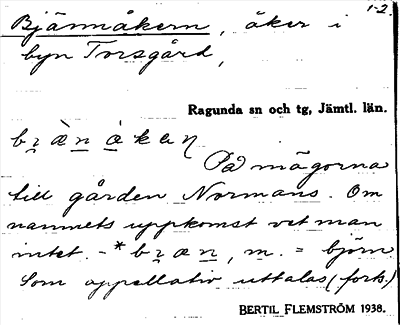 1-2.
Bjärmåkern, åker i
byn Torsgård,
Ragunda sn och tg, Jämtl. län.
På mägorna
till gården Normans. Om
namnets uppkomst vet man
intet. - * bræn, m. = björn
Som appellativ uttalas (forts.)
BERTIL FLEMSTRÖM 1938.